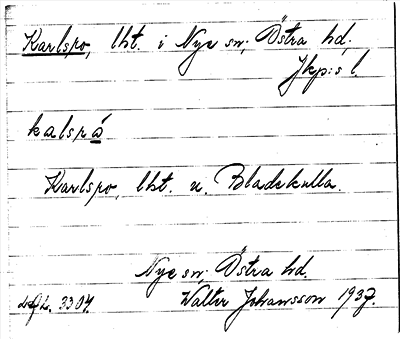 Karlspo, lht. i Nye sn; Östra hd,
Jkp:s l.
kalspå
Karlspo, lht. u. Bladekulla.
Nye sn; Östra hd.
Walter Johansson 1937.
3304.